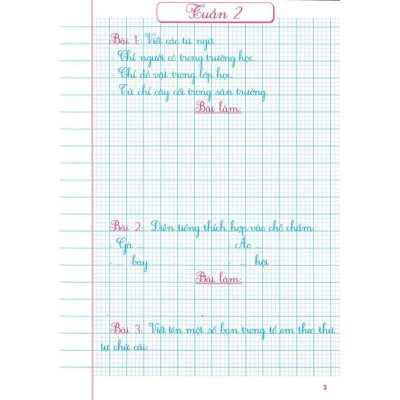 Tuần 2
Bài 1: Viết các từ ngữ
- Chỉ người có trong trường học.
- Chỉ đồ vật trong lớp học.
- Từ chỉ cây cối trong sân trường.
Bài làm:
Bài 2: Điền tiếng thích hợp vào chỗ chấm.
- Gà ... - Áo ...
- ... bay - ... hội
Bài làm:
Bài 3: Viết tên một số bạn trong tổ em theo thứ
tự chữ cái:
3